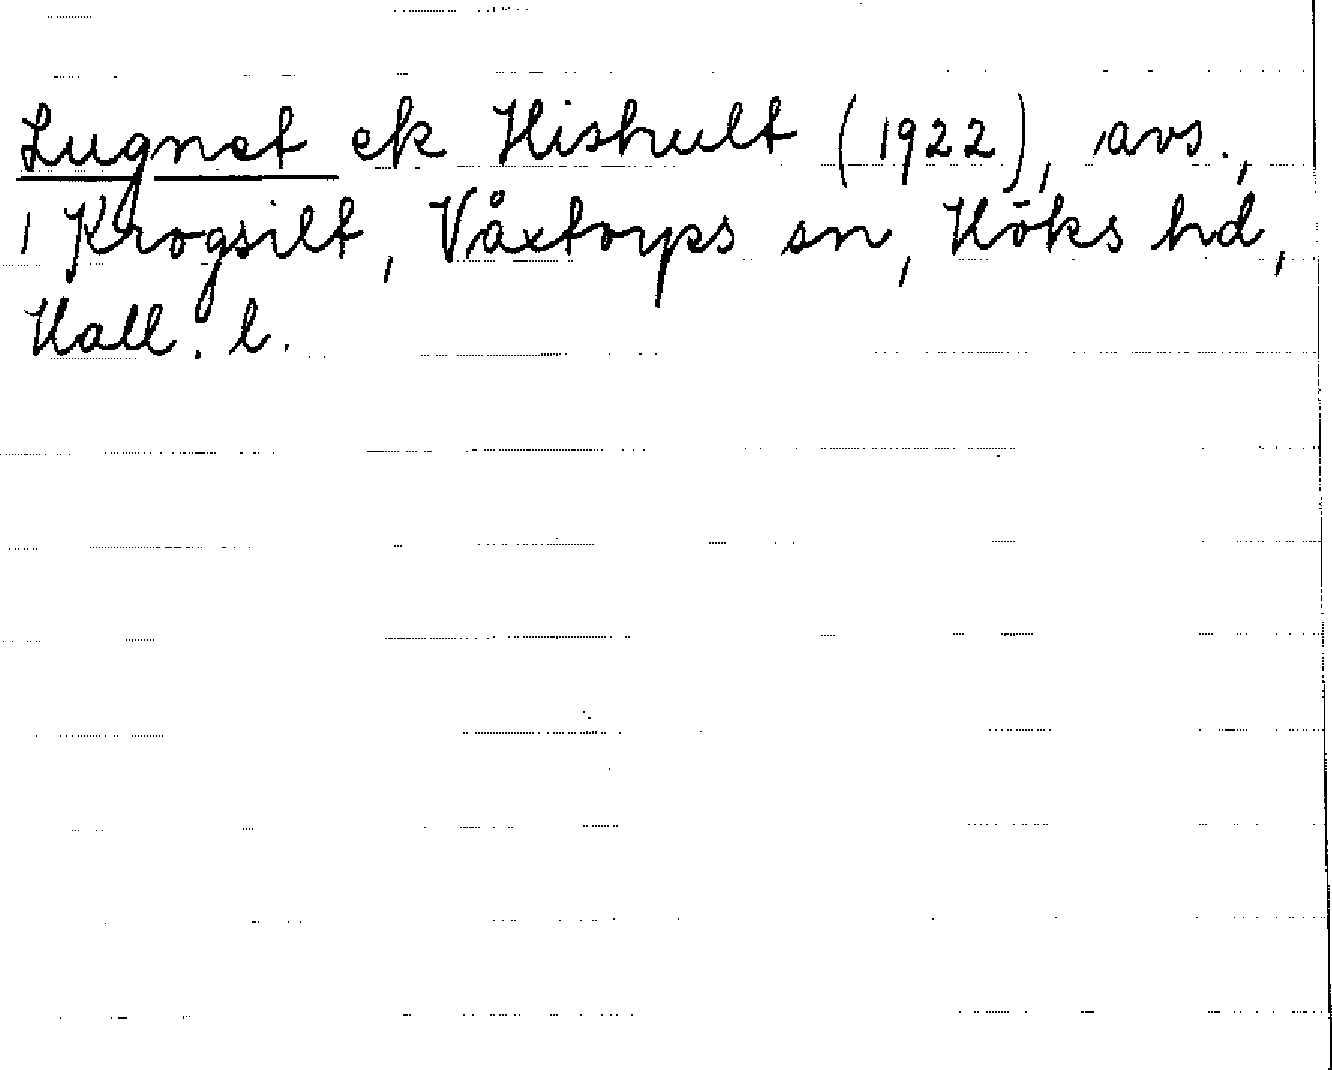 Lugnet ek Hishult (1922), avs.,
1 Krogsilt, Våxtorps sn, Höks hd,
Hall. l.